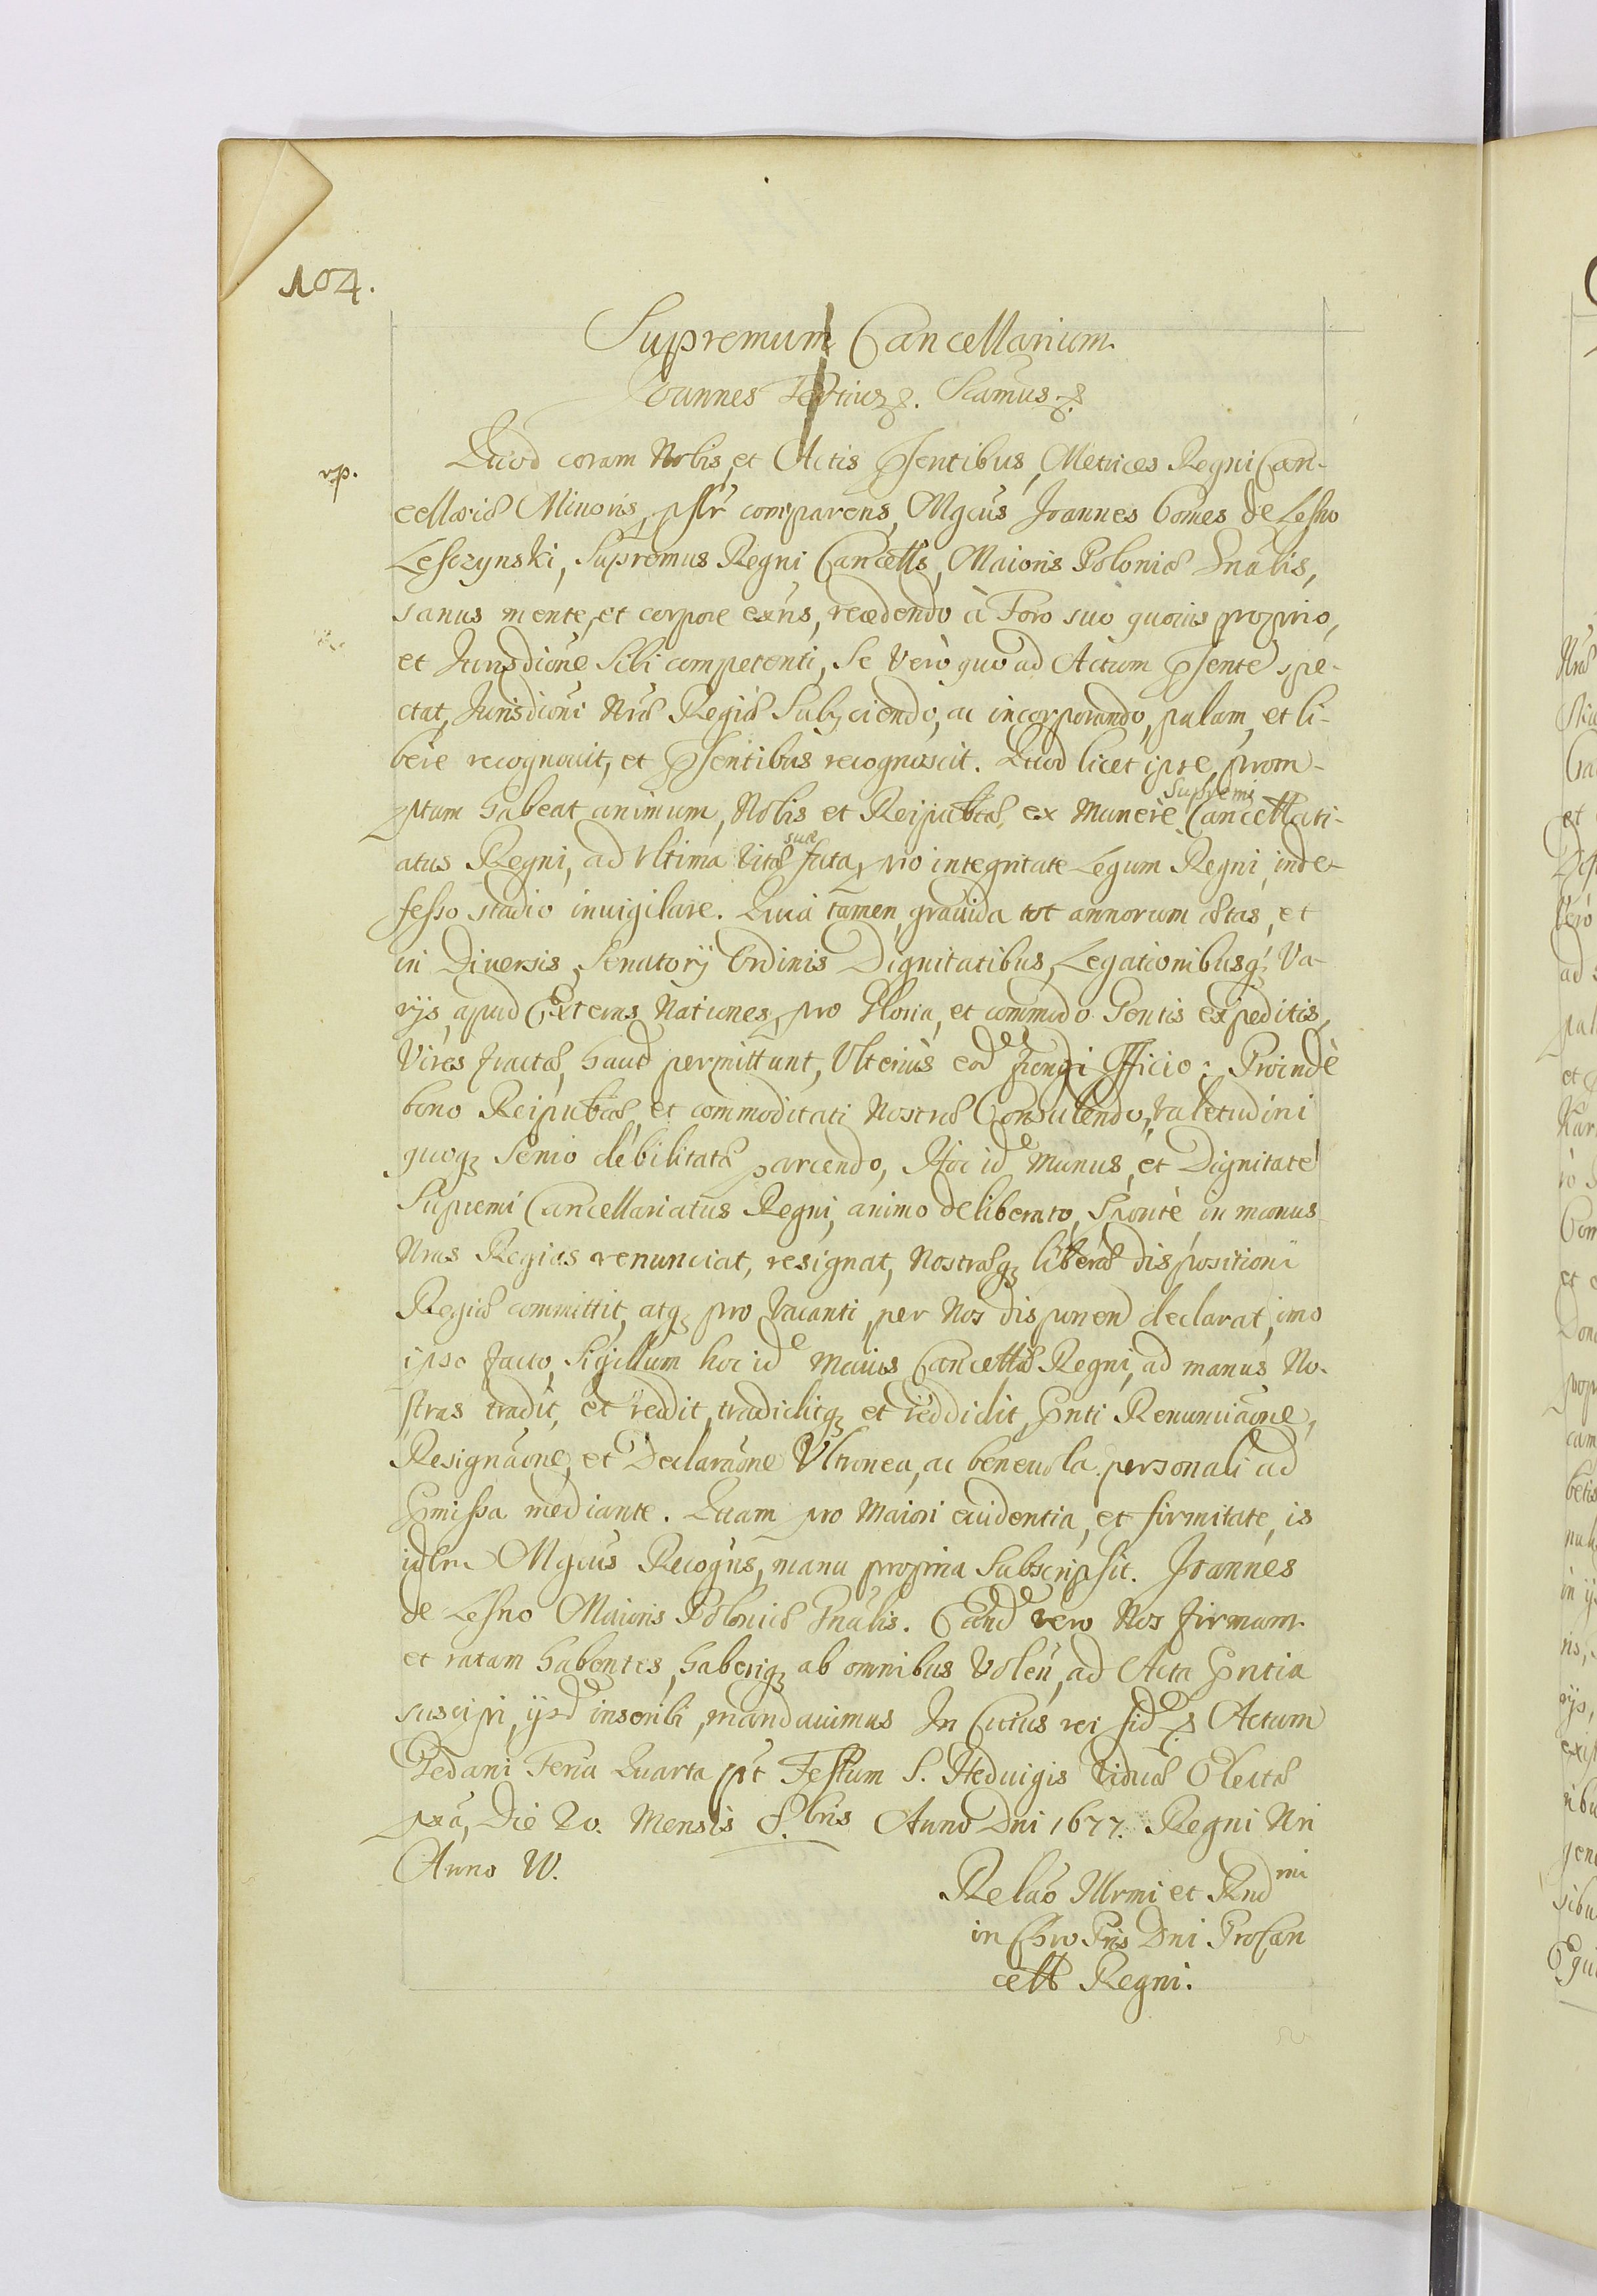 104.
Supremum Cancellarium.
Joannes Tertius &. Scamus. &.
rp.
Quod coram Nobis, et Actis Psentibus, Metrices Regni Can-
cellariæ Minoris, psltr comparens, Mgcus Joannes Comes de Leszno
Lesczynski, Supremus Regni Cancells, Maioris Poloniæ Gnalis,
sanus mente, et corpore exñs, recedendo à Foro suo quovis proprio,
et Jurisdione Sibi competenti, Se verò quo ad Actum Psente spe-
ctat, Jurisdioni Nræ Regiæ Subyciendo, ac incorporando, palam, et li-
berè recognouit, et Psentibus recognoscit. Quod licet ipse, prom-
ptum habeat animum, Nobis et Reipublæ, ex Munere Supremi Cancellari-
atus Regni, ad Vltima vitæ suæ fata, pro integritate Legum Regni, inde-
fesso studio inuigilare. Quia tamen, grauida tot annorum ætas, et
in Diuersis, Senatorÿ Ordinis Dignitatibus, Legationibusq; Va-
rÿs, apud Externas Nationes, pro Gloria, et commodo Gentis expeditis,
Vires fractæ, haud permittunt, Vlteriùs eod fungi Officio: Proindè
bono Reipublæ, et commoditati Nostræ Consulendo, valetudini
quoq; Senio debilitatæ parcendo, Hoc id Munus, et Dignitate
Supremi Cancellariatus Regni, animo deliberato, Spontè in manus
Nras Regias renunciat, resignat, Nostræq; liberæ dispositioni
Regiæ committit, atq; pro Vacanti, per Nos disponend declarat, imo
ipso facto, Sigillum hoc id Maius Cancellæ Regni, ad manus No-
stras tradit, et reddit, tradiditq; et reddidit, Pnti Renunciaone,
Resignaone, et Declaraone Vltronea, ac beneuola personali ad
Pmissa mediante. Quam pro Maiori euidentia, et firmitate, is
idem Mgcus Recogns, manu propria Subscripsit. Joannes
de Leszno Maioris Poloniæ Gnalis. Eand vero Nos firmam
et ratam habentes, haberiq; ab omnibus Volen, ad Acta Pntia
suscipi, ijsd inscribi, mandauimus In Cuius rei fid &. Actum
Gedani Feria Quarta pt Festum S. Hedvigis Viduæ Electæ
pxa, Die 20. Mensis 8.bris Anno Dni 1677. Regni Nri
Anno IV.
Relao Illrmi et Rndmi
in Chro Pris Dni ProCan
cell Regni.